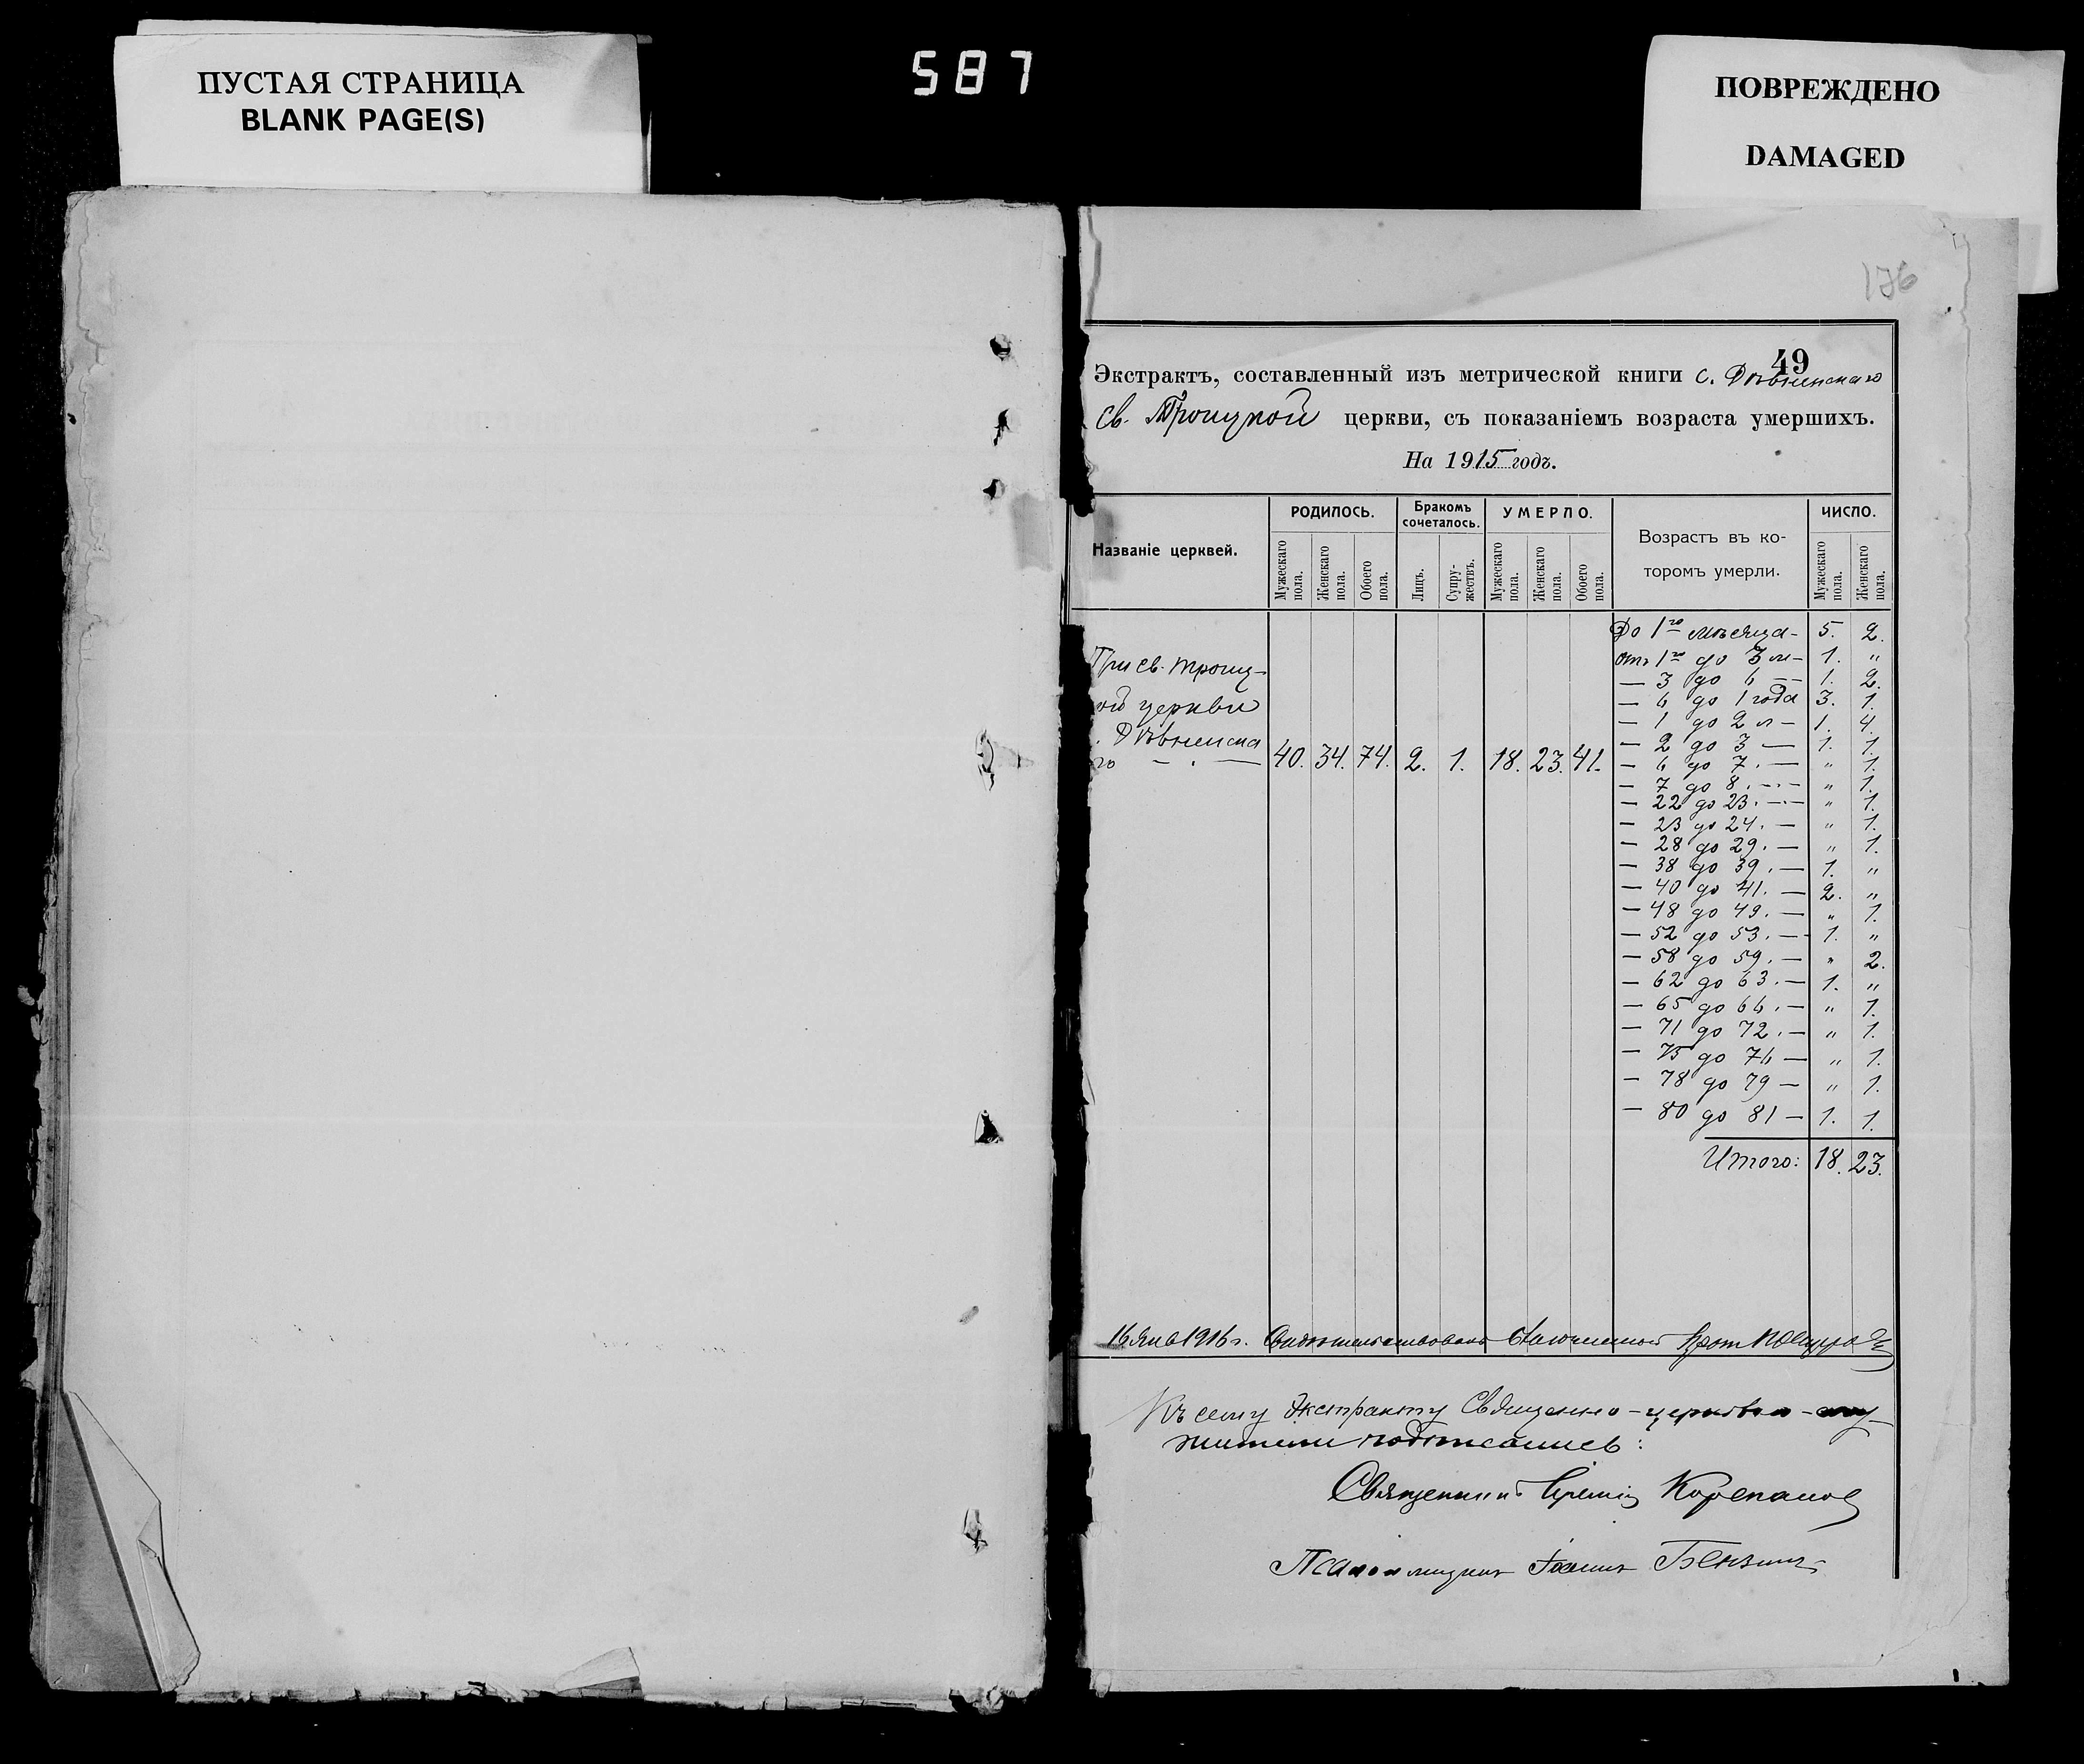 ПУСТАЯ СТРАНИЦА
BLANK PAGE(S)
587
ПОВРЕЖДЕНО
DAMAGED
176
49
Экстрактъ, составленный изъ метрической книги с.
св. Троицкой церкви, съ показаніемъ возраста умершихъ.
На 1915 годъ.
Названіе церквей.
РОДИЛОСЬ.
Мужескаго пола.
Женскаго пола.
Обоего пола.
Бракомъ сочеталось.
Лицъ.
Супружествъ.
УМЕРЛО.
Мужескаго пола.
Женскаго пола.
Обоего пола.
Возрастъ въ которомъ умерли.
ЧИСЛО.
Мужескаго пола.
Женскаго пола.
При св. Троиц-
ой церкви
го — . — 40. 34. 74. 2. 1. 18. 23. 41.
До 1го мѣсяца — 5. 2.
отъ 1го до 3 м — 1. "
— 3 до 6 — 1. 2.
— 6 до 1 года 3. 1.
— 1 до 2 л — 1. 4.
— 2 до 3 — 1. 1.
— 6 до 7. — " 1.
— 7 до 8. — " 1.
— 22 до 23. — " 1.
— 23 до 24. — " 1.
— 28 до 29. — " 1.
— 38 до 39. — 1. "
— 40 до 41. — 2. "
— 48 до 49. — " 1.
— 52 до 53. — 1. "
— 58 до 59. — " 2.
— 62 до 63. — 1. "
— 65 до 66. — " 1.
— 71 до 72. — " 1.
— 75 до 76 — " 1.
— 78 до 79 — " 1.
— 80 до 81 — 1. 1.
Итого: 18. 23.
16 Янв 1916 г.
Къ сему экстракту Священно-церковно-слу-
жители подписались:
Священникъ Корепанов
Псаломщикъ Іоаннъ